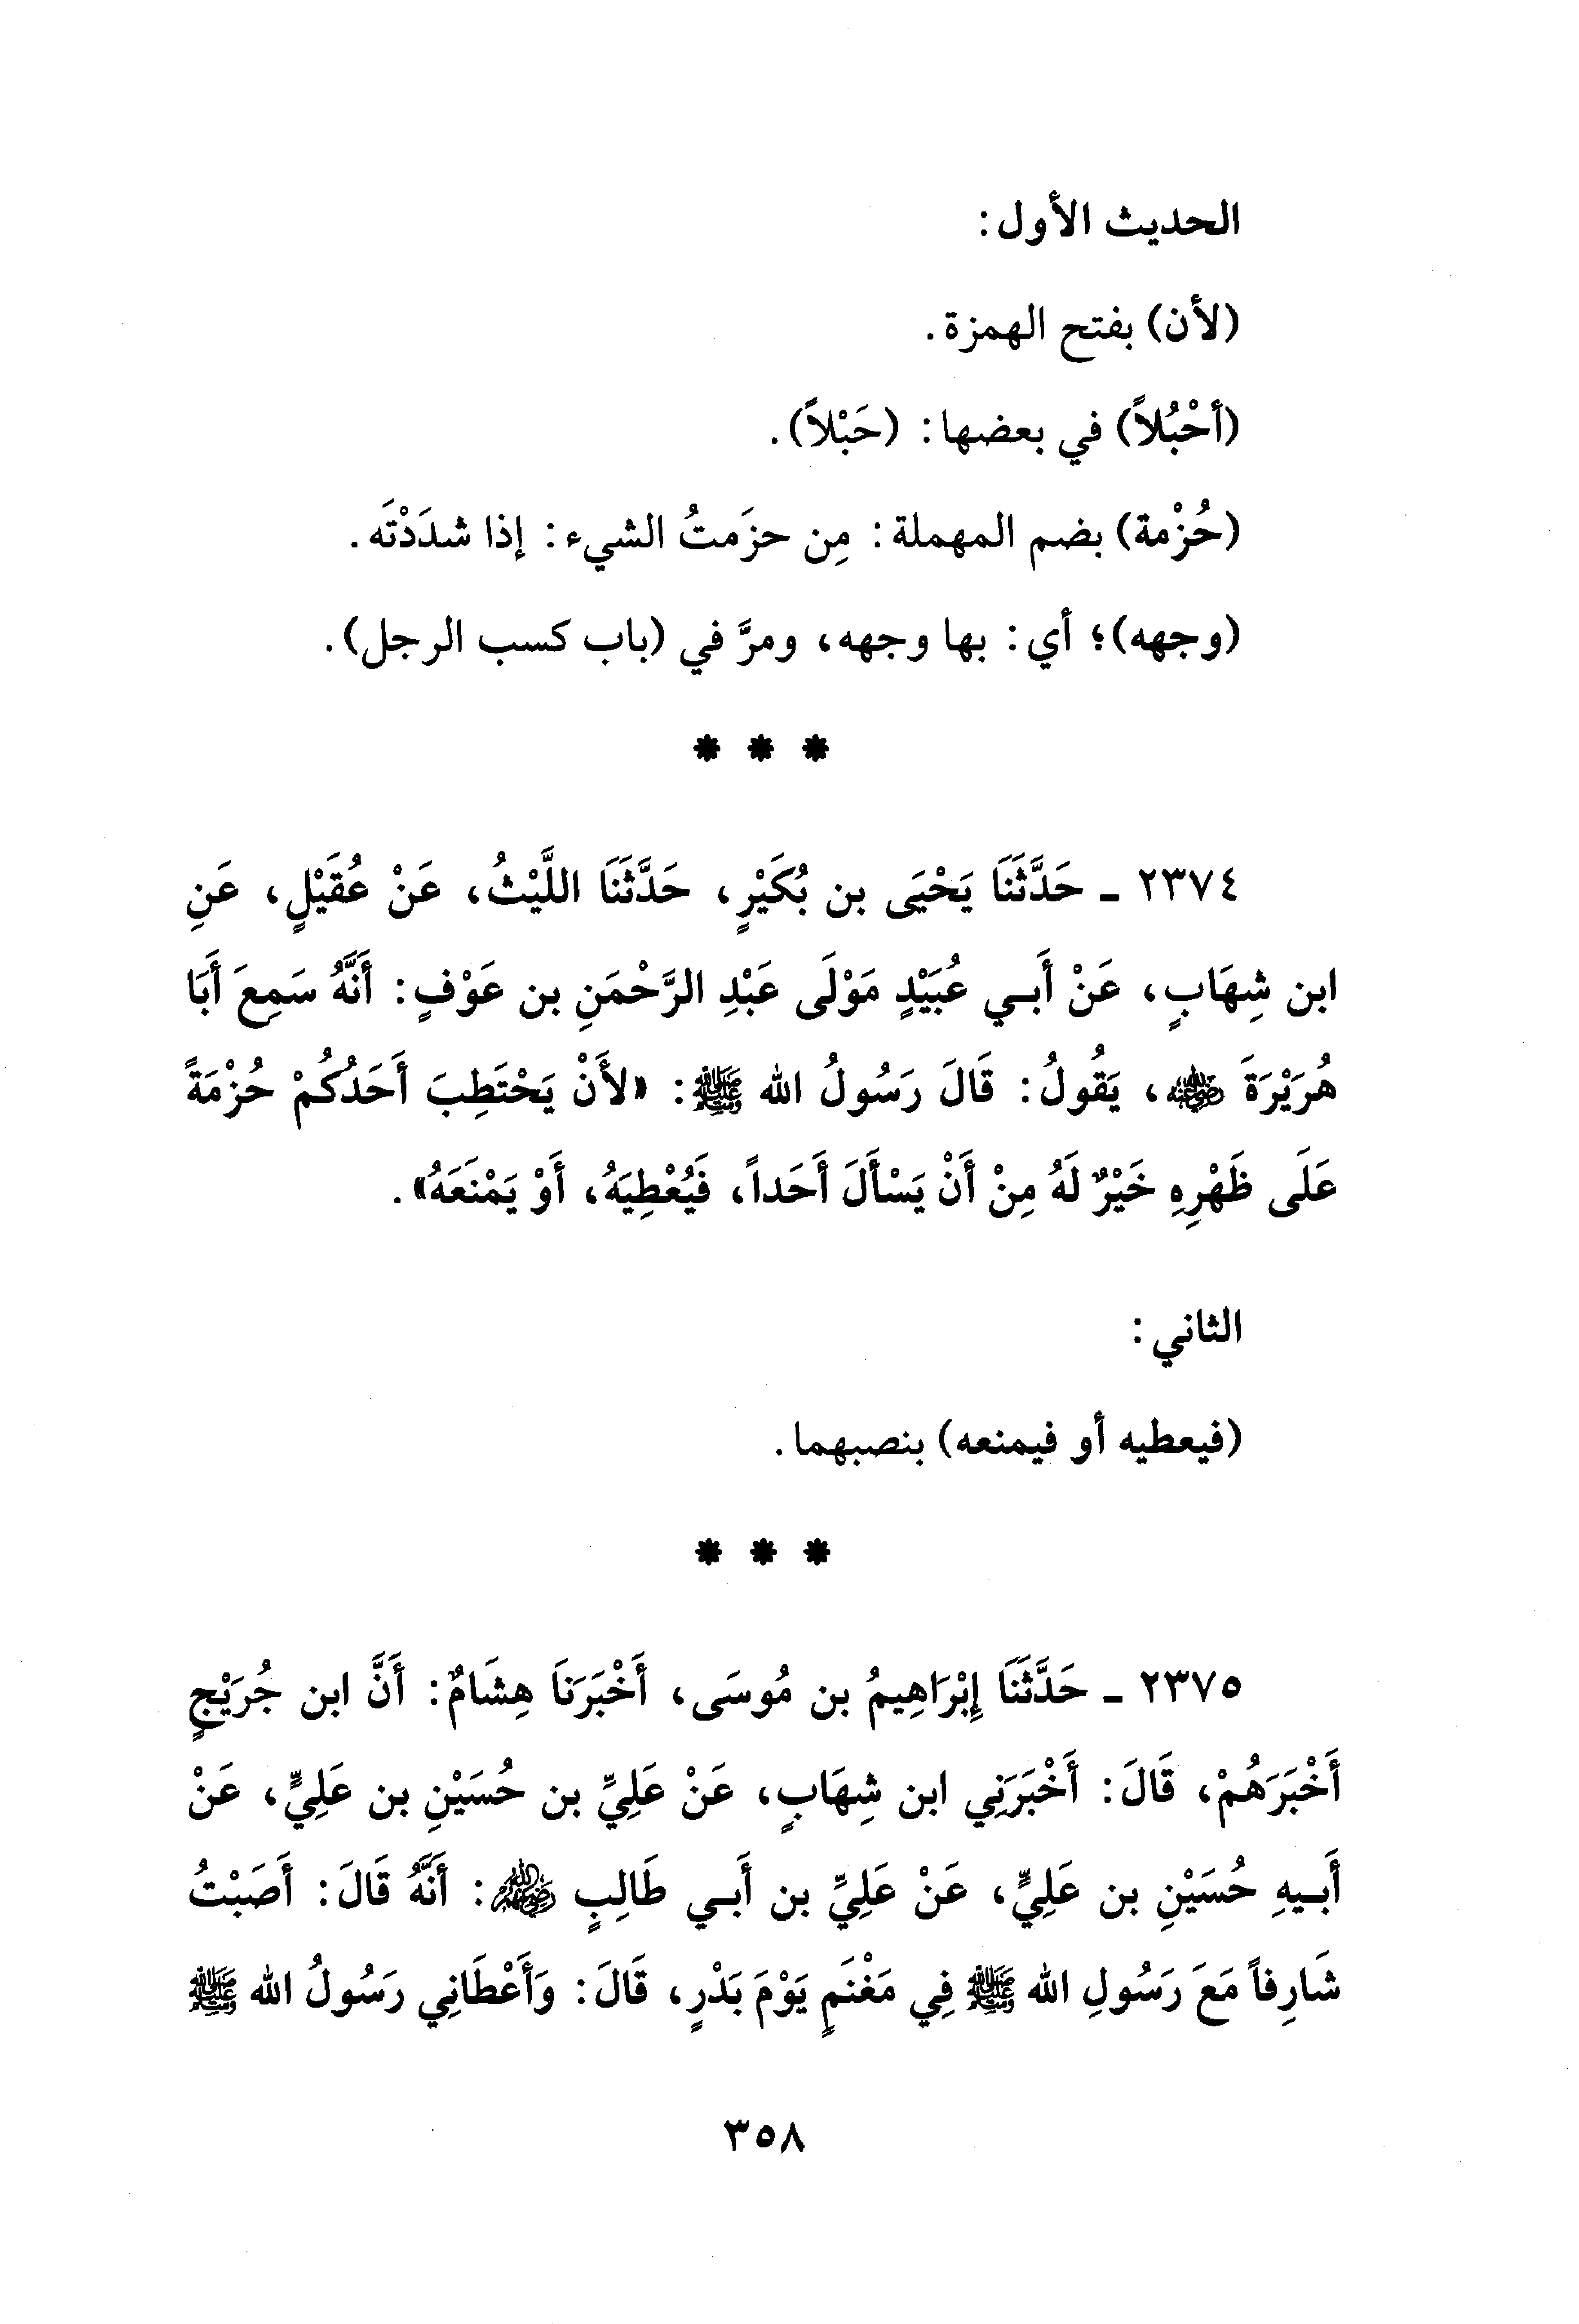 الحديث الأول:
(لأن) بفتح الهمزة.
(أحْبُلاً) في بعضها: (حَبْلاً).
(حُزْمة) بضم المهملة: مِن حزَمتُ الشيء: إذا شدَدْتَه.
(وجهه)؛ أي: بها وجهه، ومرَّ في (باب كسب الرجل).
* * *
٢٣٧٤ - حَدَّثَنَا يَحْيَى بن بُكَيْرٍ، حَدَّثَنَا اللَّيْثُ، عَنْ عُقَيْلٍ، عَنِ
ابن شِهَابٍ، عَنْ أَبِي عُبَيْدٍ مَوْلَى عَبْدِ الرَّحْمَنِ بن عَوْفٍ: أَنَّهُ سَمِعَ أَبَا
هُرَيْرَةَ رضي الله عنه، يَقُولُ: قَالَ رَسُولُ الله ﷺ: «لأَنْ يَحْتَطِبَ أَحَدُكُمْ حُزْمَةً
عَلَى ظَهْرِهِ خَيْرٌ لَهُ مِنْ أَنْ يَسْأَلَ أَحَداً، فَيُعْطِيَهُ، أَوْ يَمْنَعَهُ».
الثاني:
(فيعطيه أو فيمنعه) بنصبهما.
* * *
٢٣٧٥ - حَدَّثَنَا إِبْرَاهِيمُ بن مُوسَى، أَخْبَرَنَا هِشَامٌ: أَنَّ ابن جُرَيْجٍ
أَخْبَرَهُمْ، قَالَ: أَخْبَرَنِي ابن شِهَابٍ، عَنْ عَلِيِّ بن حُسَيْنِ بن عَلِيٍّ، عَنْ
أَبِيهِ حُسَيْنِ بن عَلِيٍّ، عَنْ عَلِيِّ بن أَبِي طَالِبٍ رضي الله عنهم: أَنَّهُ قَالَ: أَصَبْتُ
شَارِفاً مَعَ رَسُولِ الله ﷺ فِي مَغْنَمٍ يَوْمَ بَدْرٍ، قَالَ: وَأَعْطَانِي رَسُولُ الله ﷺ
٣٥٨